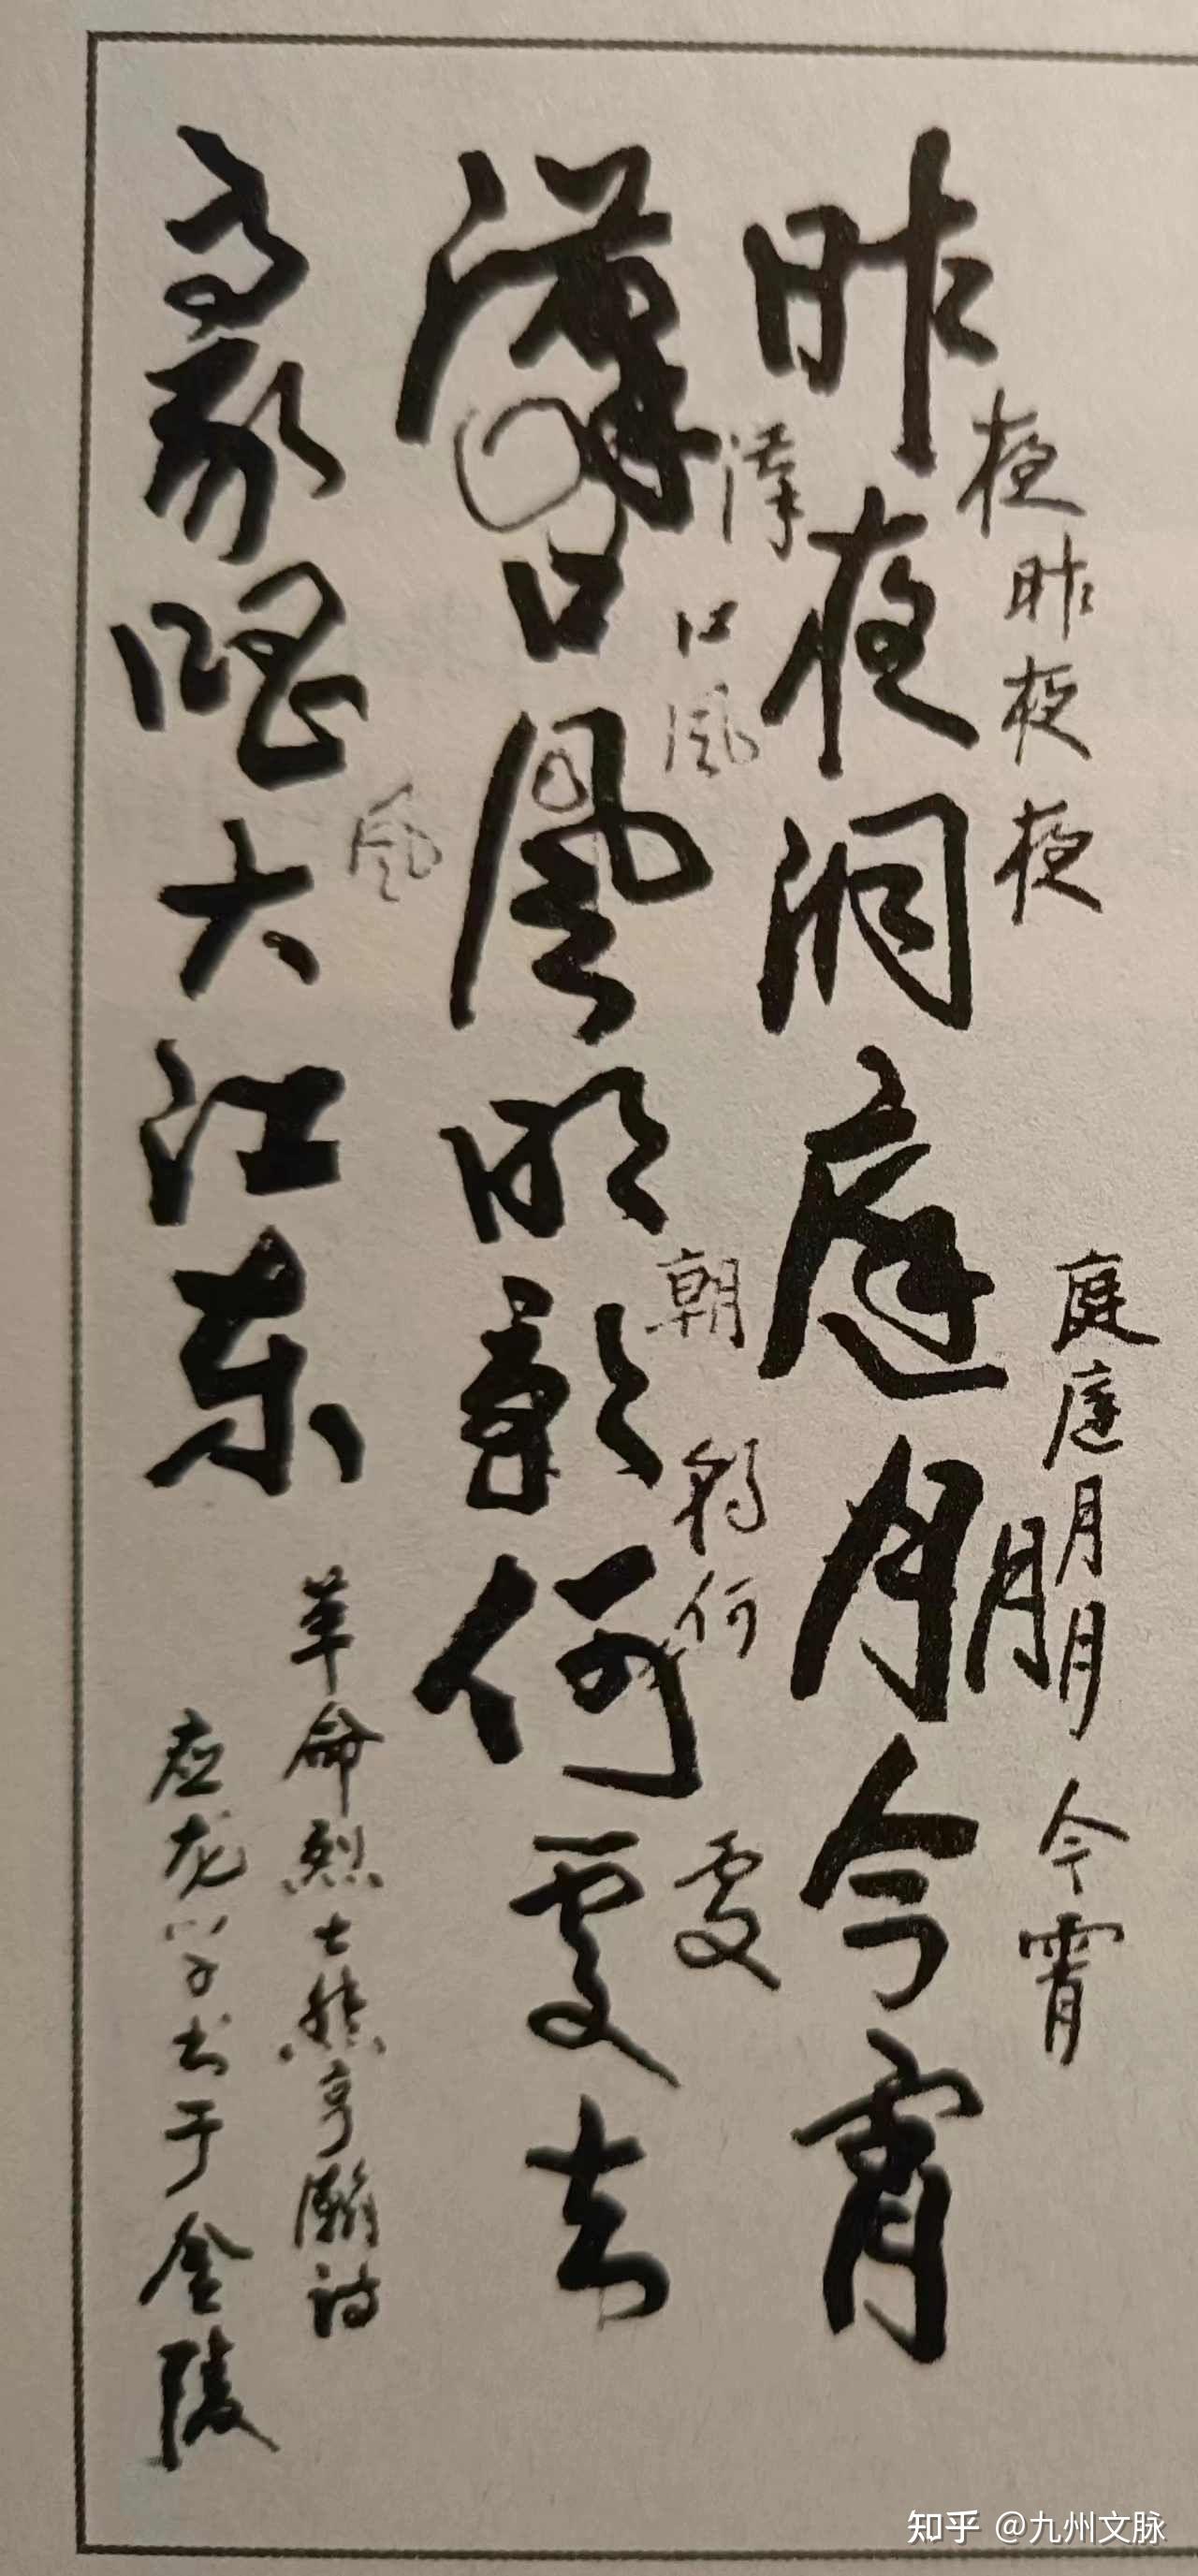 昨夜洞庭月今宵
漢口風明朝何處去
豪唱大江東
革命烈士熊亨瀚詩
应龙学书于金陵
夜昨夜夜
庭庭月月月今宵
漢口風
朝朝何
處
風
知乎 @九州文脉